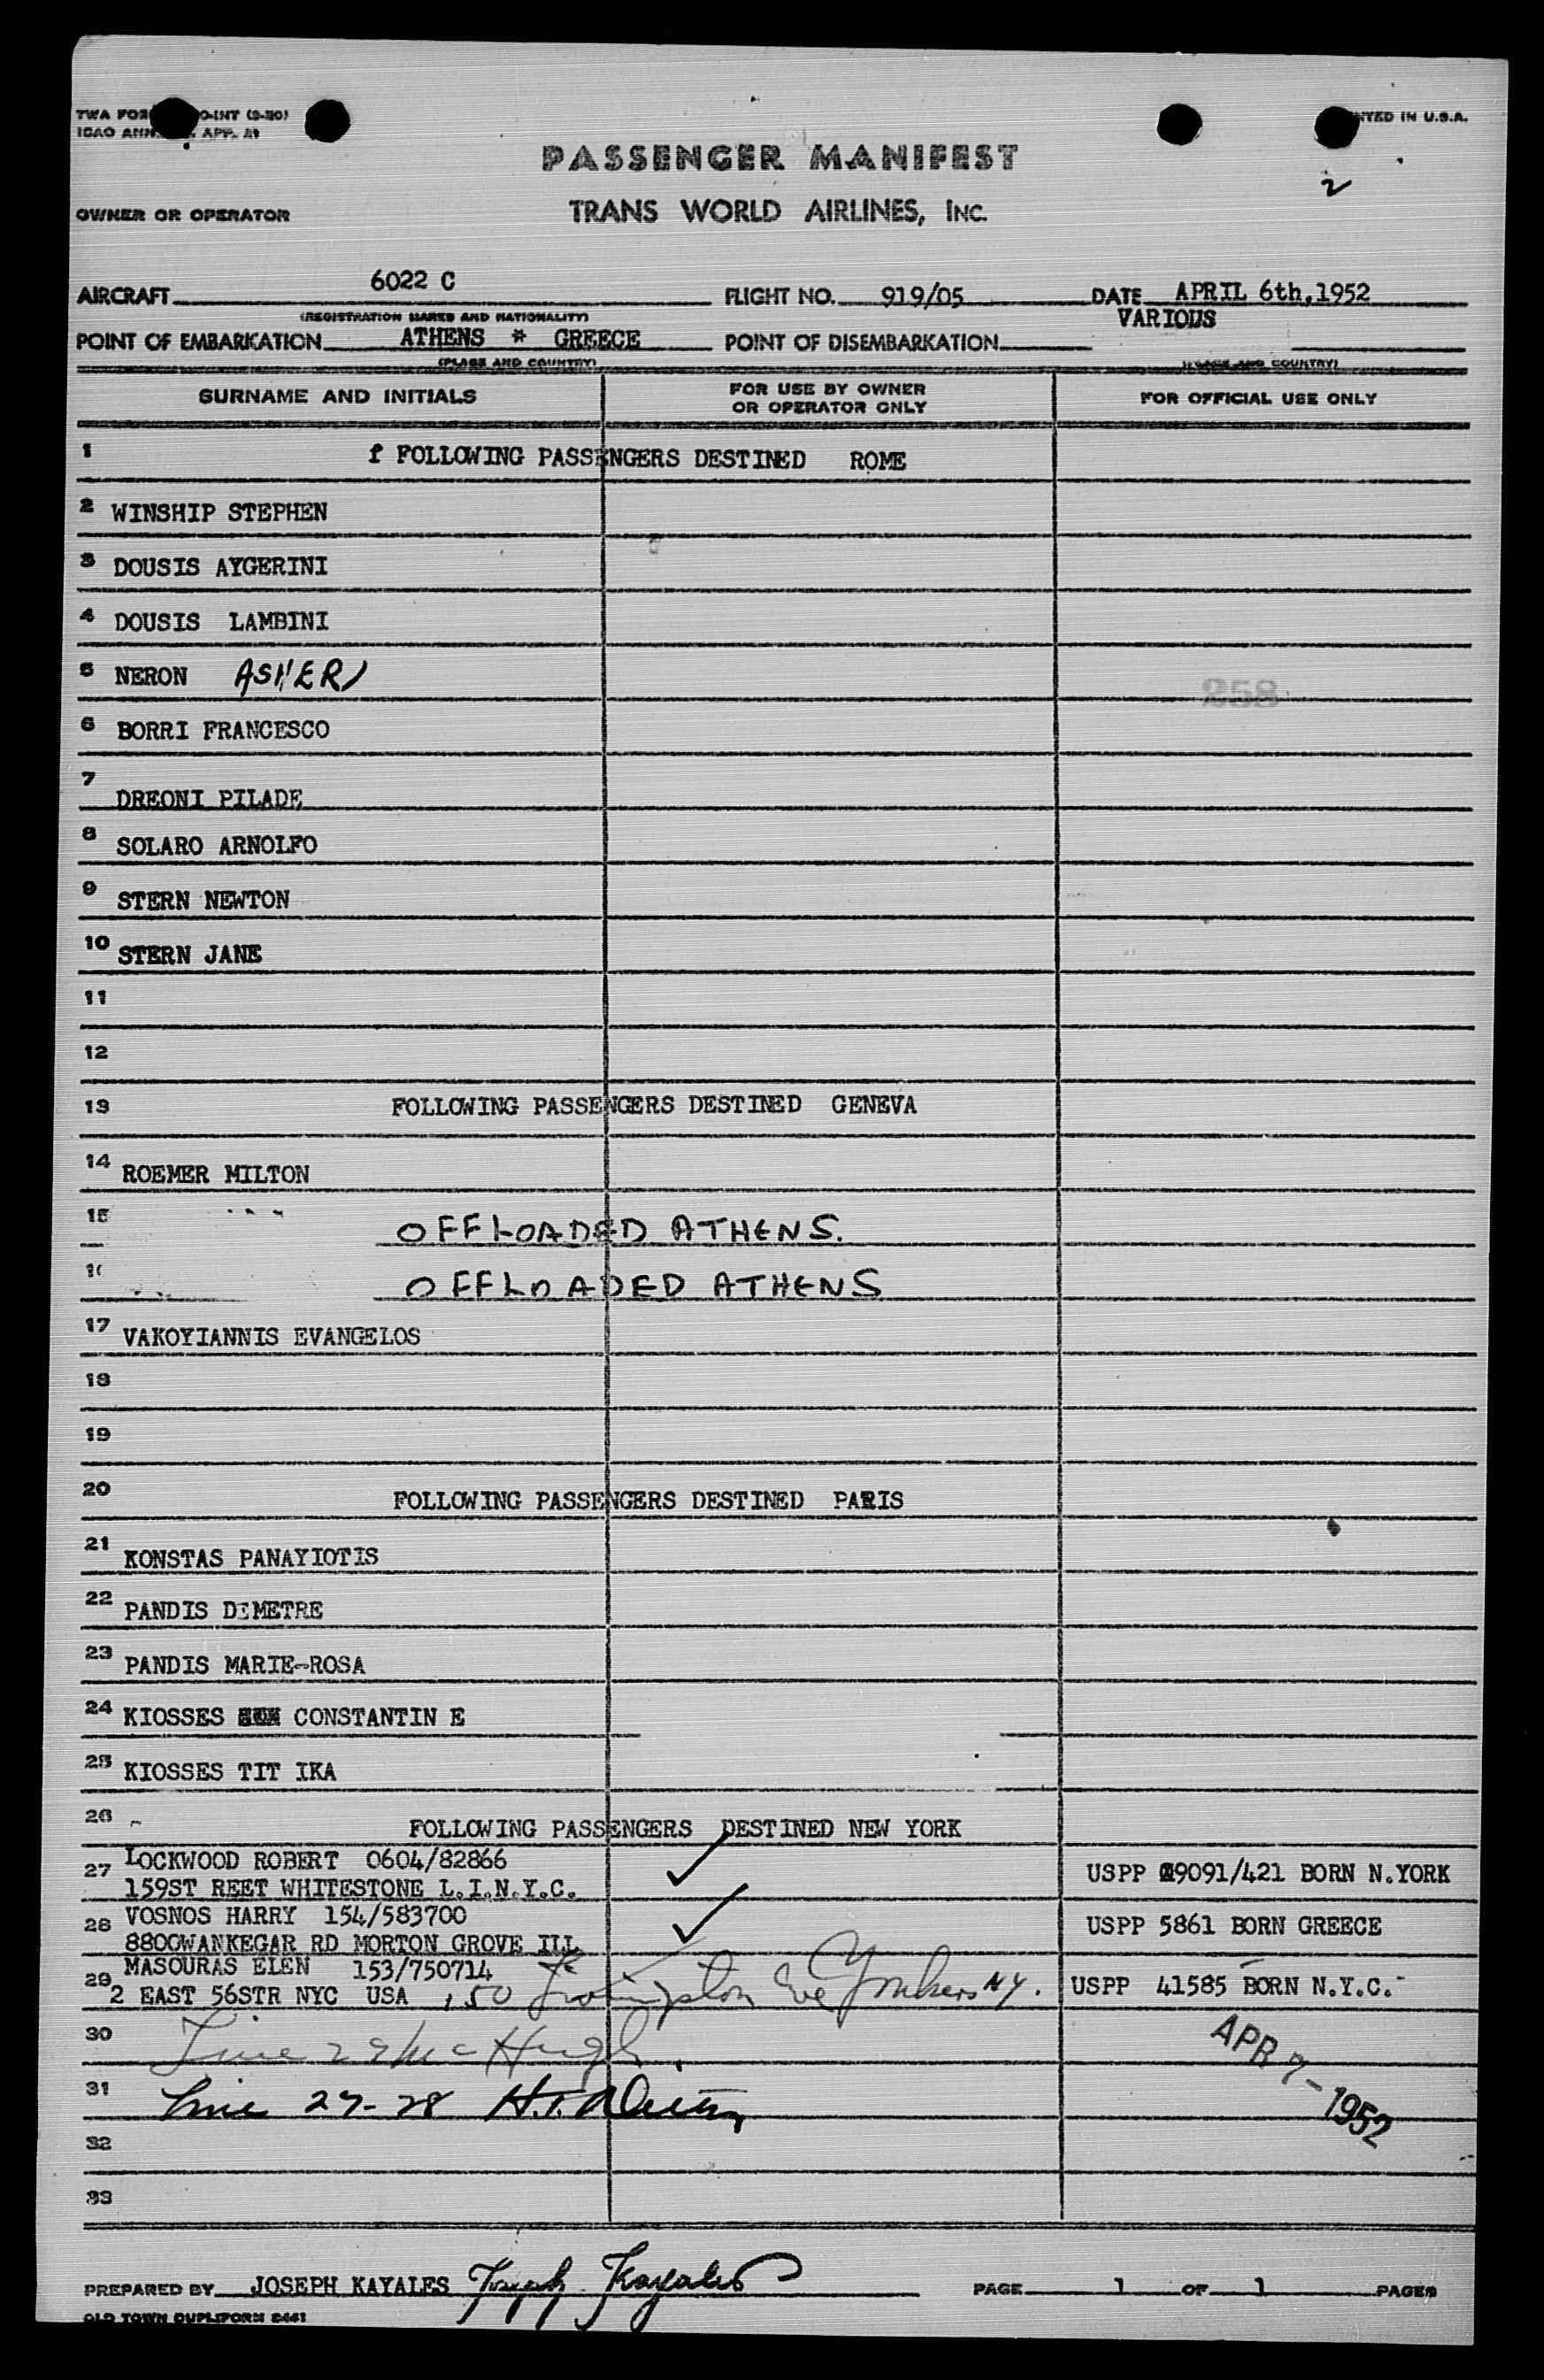 PRINTED IN U.S.A.
2
PASSENGER MANIFEST
OWNER OR OPERATOR TRANS WORLD AIRLINES, INC.
AIRCRAFT 6022 C FLIGHT NO. 919/05 DATE APRIL 6th,1952
(REGISTRATION MARKS AND NATIONALITY) VARIOUS
POINT OF EMBARKATION ATHENS * GREECE POINT OF DISEMBARKATION
(PLACE AND COUNTRY) (PLACE AND COUNTRY)
SURNAME AND INITIALS FOR USE BY OWNER OR OPERATOR ONLY FOR OFFICIAL USE ONLY
1 f FOLLOWING PASSENGERS DESTINED ROME
2 WINSHIP STEPHEN
3 DOUSIS AYGERINI
4 DOUSIS LAMBINI
5 NERON ASHER
258
6 BORRI FRANCESCO
7 DREONI PILADE
8 SOLARO ARNOLFO
9 STERN NEWTON
10 STERN JANE
11
12
13 FOLLOWING PASSENGERS DESTINED GENEVA
14 ROEMER MILTON
15 OFFLOADED ATHENS.
16 OFFLOADED ATHENS
17 VAKOYIANNIS EVANGELOS
18
19
20 FOLLOWING PASSENGERS DESTINED PARIS
21 KONSTAS PANAYIOTIS
22 PANDIS DEMETRE
23 PANDIS MARIE-ROSA
24 KIOSSES CONSTANTIN E
25 KIOSSES TIT IKA
26 FOLLOWING PASSENGERS DESTINED NEW YORK
27 LOCKWOOD ROBERT 0604/82866
159ST REET WHITESTONE L.I.N.Y.C. ✓ USPP 29091/421 BORN N.YORK
28 VOSNOS HARRY 154/583700
8800WANKEGAR RD MORTON GROVE ILL ✓ USPP 5861 BORN GREECE
29 MASOURAS ELEN 153/750714
2 EAST 56STR NYC USA 150 Livingston Ave Yonkers NY. USPP 41585 BORN N.Y.C.
30 Line 29 McHugh.
APR 7-1952
31 Line 27-28 H.
32
33
PREPARED BY JOSEPH KAYALES Joseph Kayales PAGE 1 OF 1 PAGES
OLD TOWN DUPLIFORM 2441